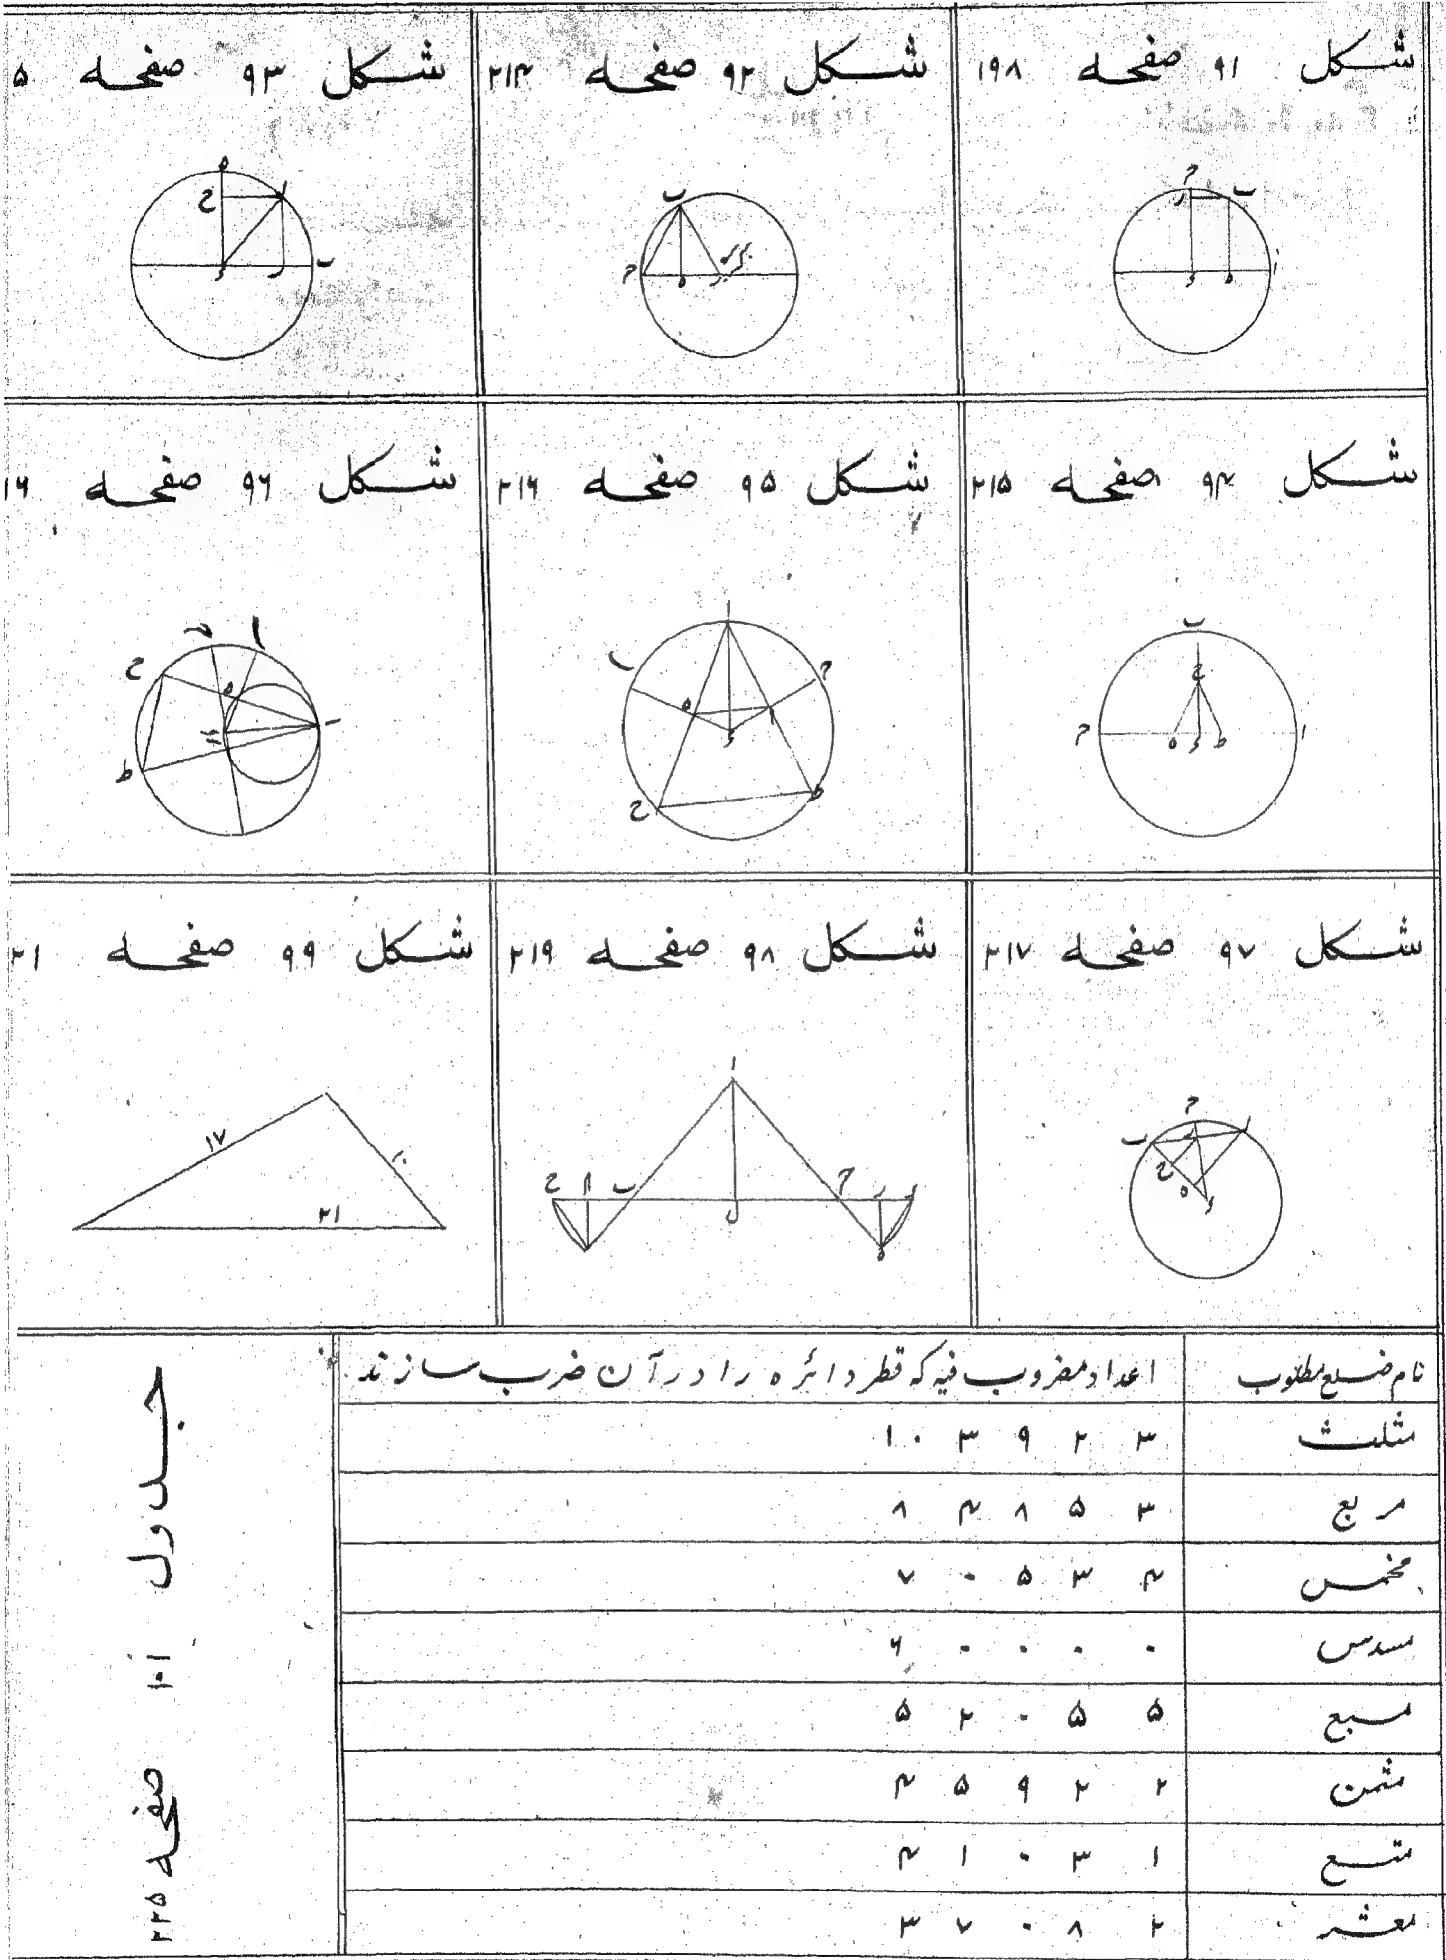 شکل ۹۱ صفحه ۱۹۸
م
ب
ر
ء
ه
ا
شکل ۹۲ صفحه ۲۱۴
ب
م
ه
شکل ۹۳ صفحه ۵
ه
ح
ا
ب
ء
ر
شکل ۹۴ صفحه ۲۱۵
ب
ح
م
ه
ء
ط
ا
شکل ۹۵ صفحه ۲۱۶
ا
ب
م
ه
ء
ح
ط
شکل ۹۶ صفحه ۱۶
ا
ح
ه
ط
شکل ۹۷ صفحه ۲۱۷
م
ب
ا
ح
ه
ء
شکل ۹۸ صفحه ۲۱۹
ا
ح
ب
م
ر
ل
ه
شکل ۹۹ صفحه ۲۱
۱۷
۲۱
نام ضلع مطلوب اعداد مضروب فیه که قطر دائره را در آن ضرب سازند
مثلث ۱۰۳۹۲۳
مربع ۸۴۸۵۳
مخمس ۷۰۵۳۴
مسدس ۶۰۰۰۰
مسبع ۵۲۰۵۵
مثمن ۴۵۹۲۲
متسع ۴۱۰۳۱
معشر ۳۷۰۸۲
جدول ۱۰۱ صفحه ۲۲۵